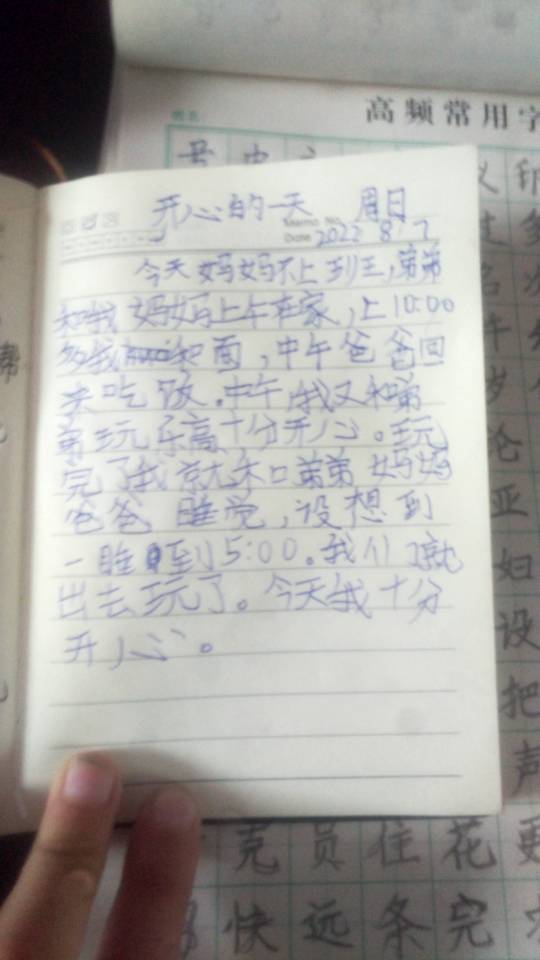 高频常用字
开心的一天 周日
Memo No.
Date 2022 8.7
今天妈妈不上班,弟弟
和我妈妈上午在家,上10:00
多我和面,中午爸爸回
来吃饭。中午我又和弟
弟玩乐高十分开心。玩
完了我就和弟弟妈妈
爸爸睡觉,设想到
一睡到5:00。我们就
出去玩了。今天我十分
开心。
帮
亚
妇
设
把
声
克员住花更
快远条完